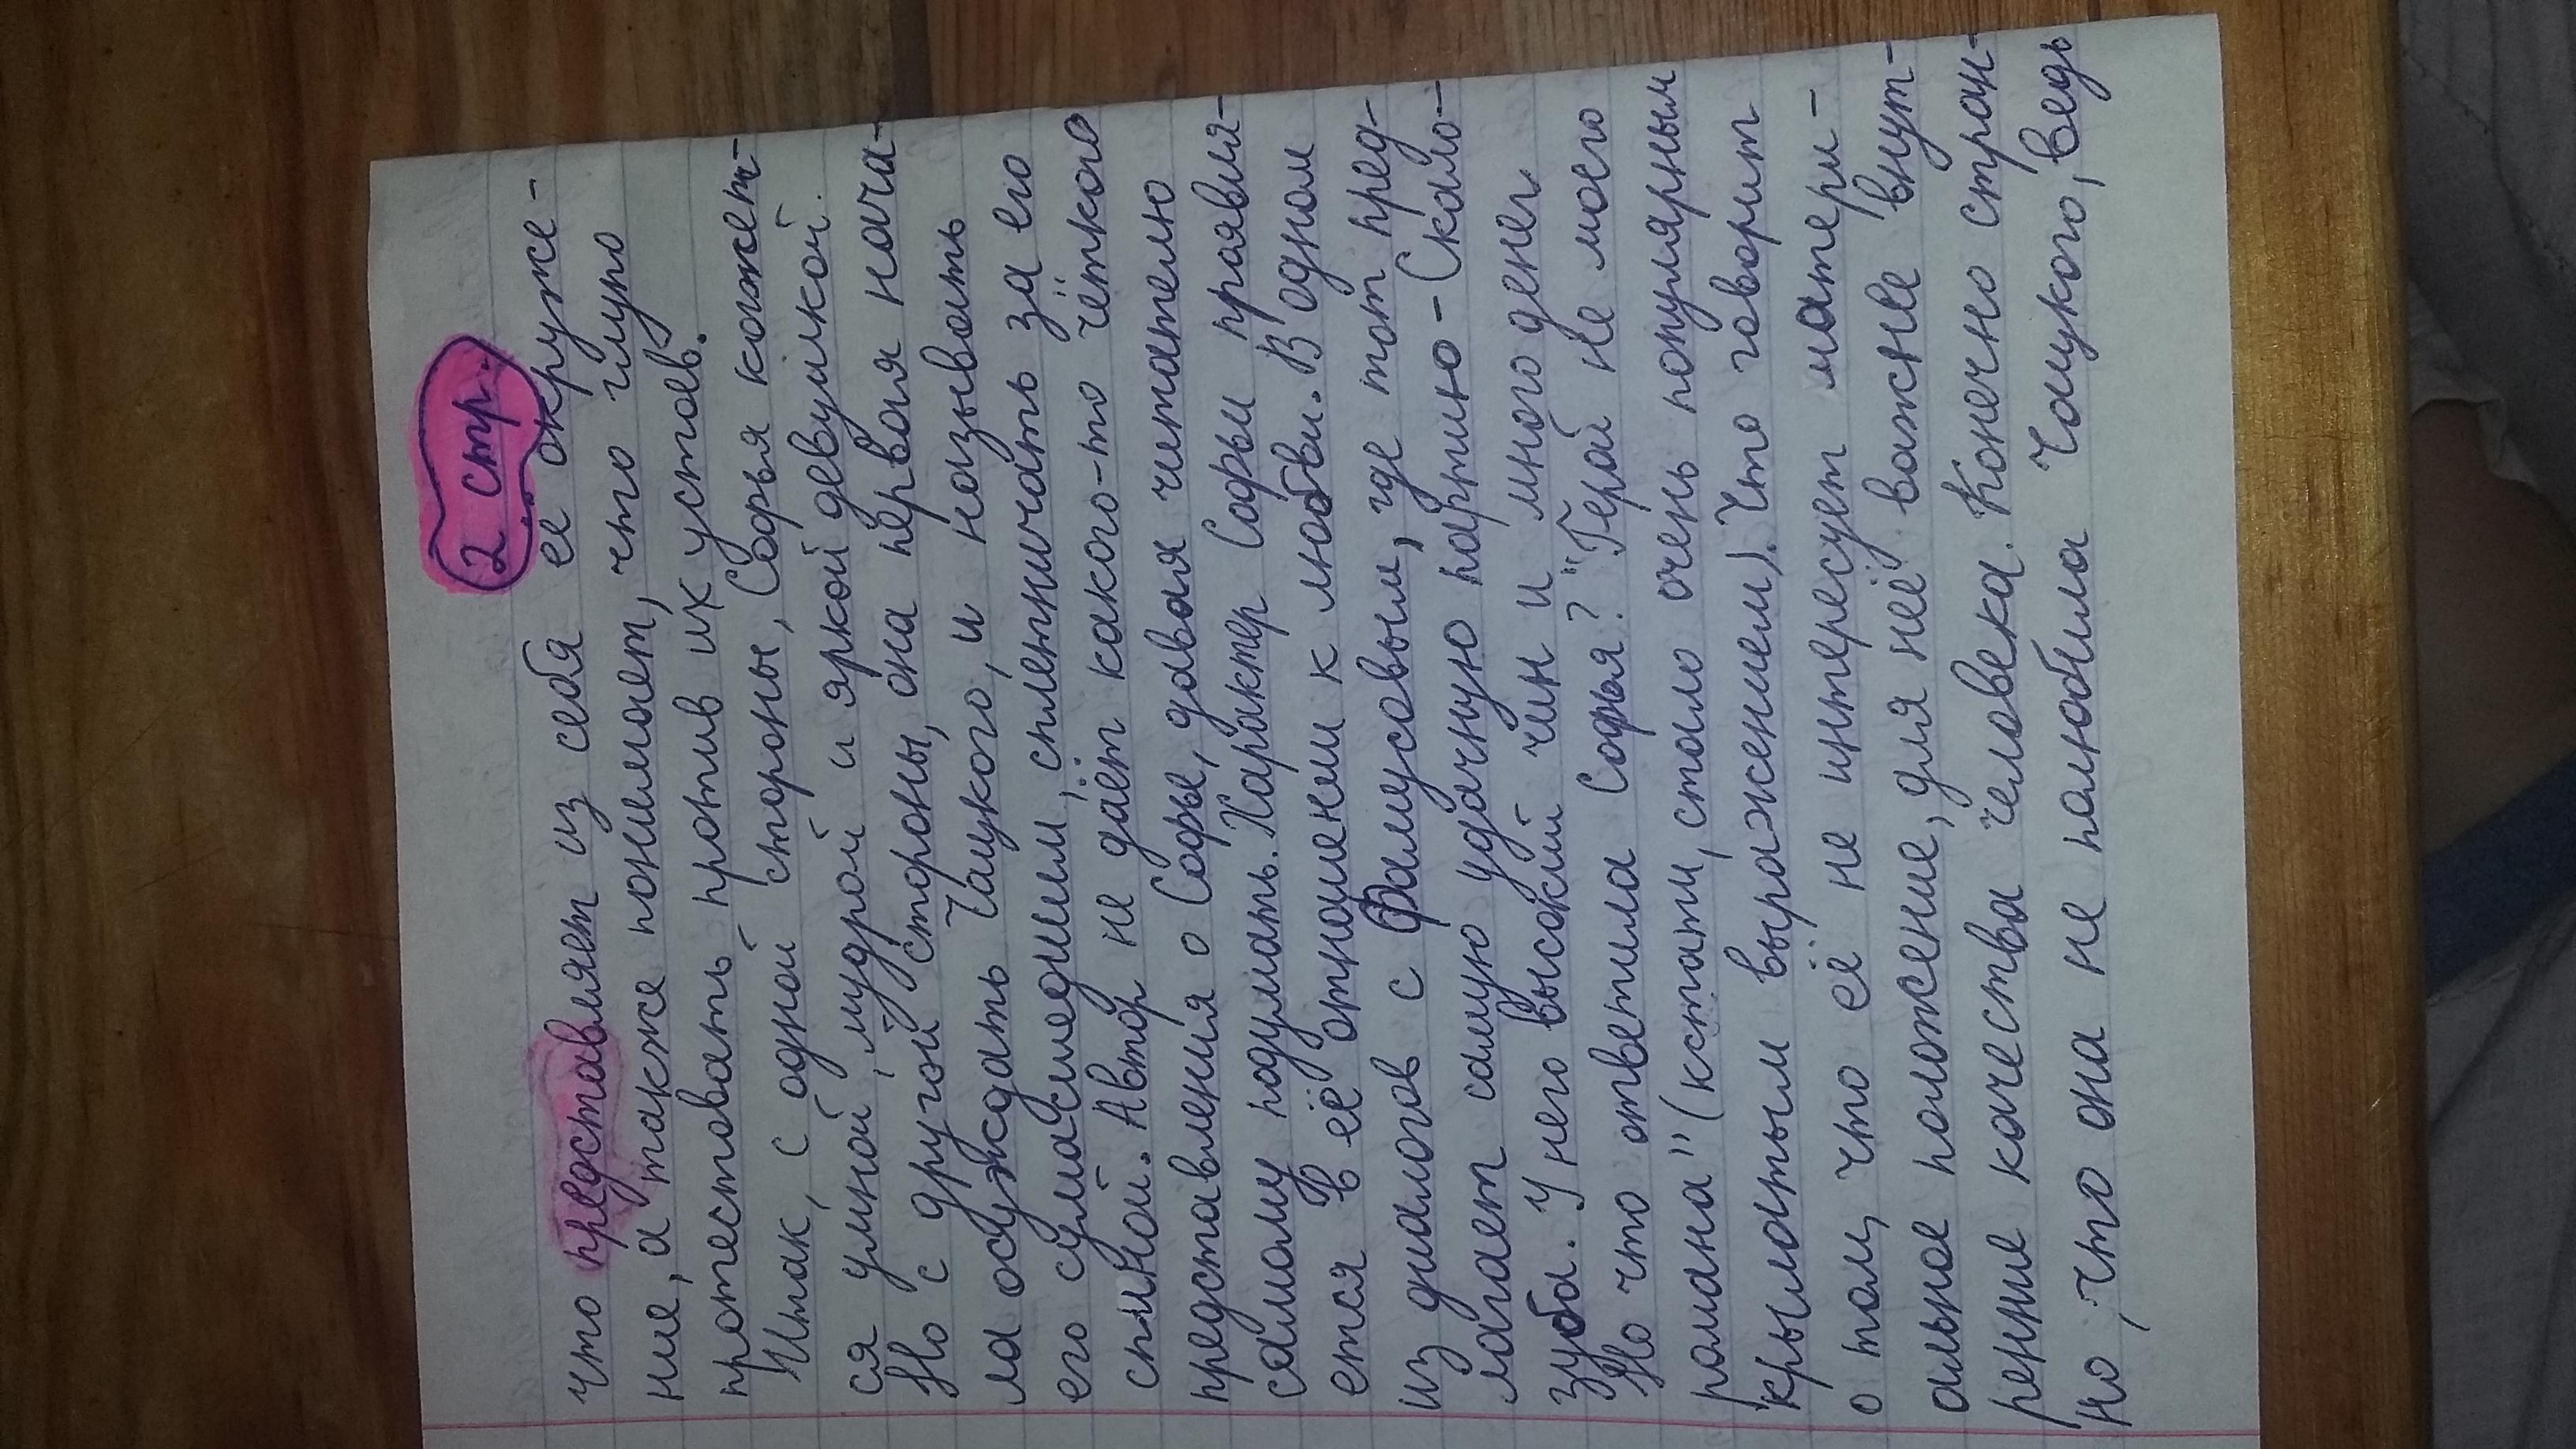 2 стр.
что представляет из себя её окруже-
ние, а также понимает, что глупо
протестовать против их устоев.
Итак, с одной стороны, Софья кажет-
ся умной, мудрой и яркой девушкой.
Но с другой стороны, она первая нача-
ла осуждать Чацкого, и называть
его сумасшедшим, сплетничать за его
спиной. Автор не даёт какого-то чёткого
представления о Софье, давая читателю
самому подумать. Характер Софьи проявля-
ется в её отношении к любви. В одном
из диалогов с Фамусовым, где тот пред-
лагает самую удачную партию - Скало-
зуба. У него высокий чин и много денег.
Но что ответила Софья? "Герой не моего
романа" (кстати, стало очень популярным
крылатым выражением). Что говорит
о том, что её не интересует матери-
альное положение, для неё важнее внут-
ренние качества человека. Конечно стран-
но, что она не полюбила Чацкого, ведь